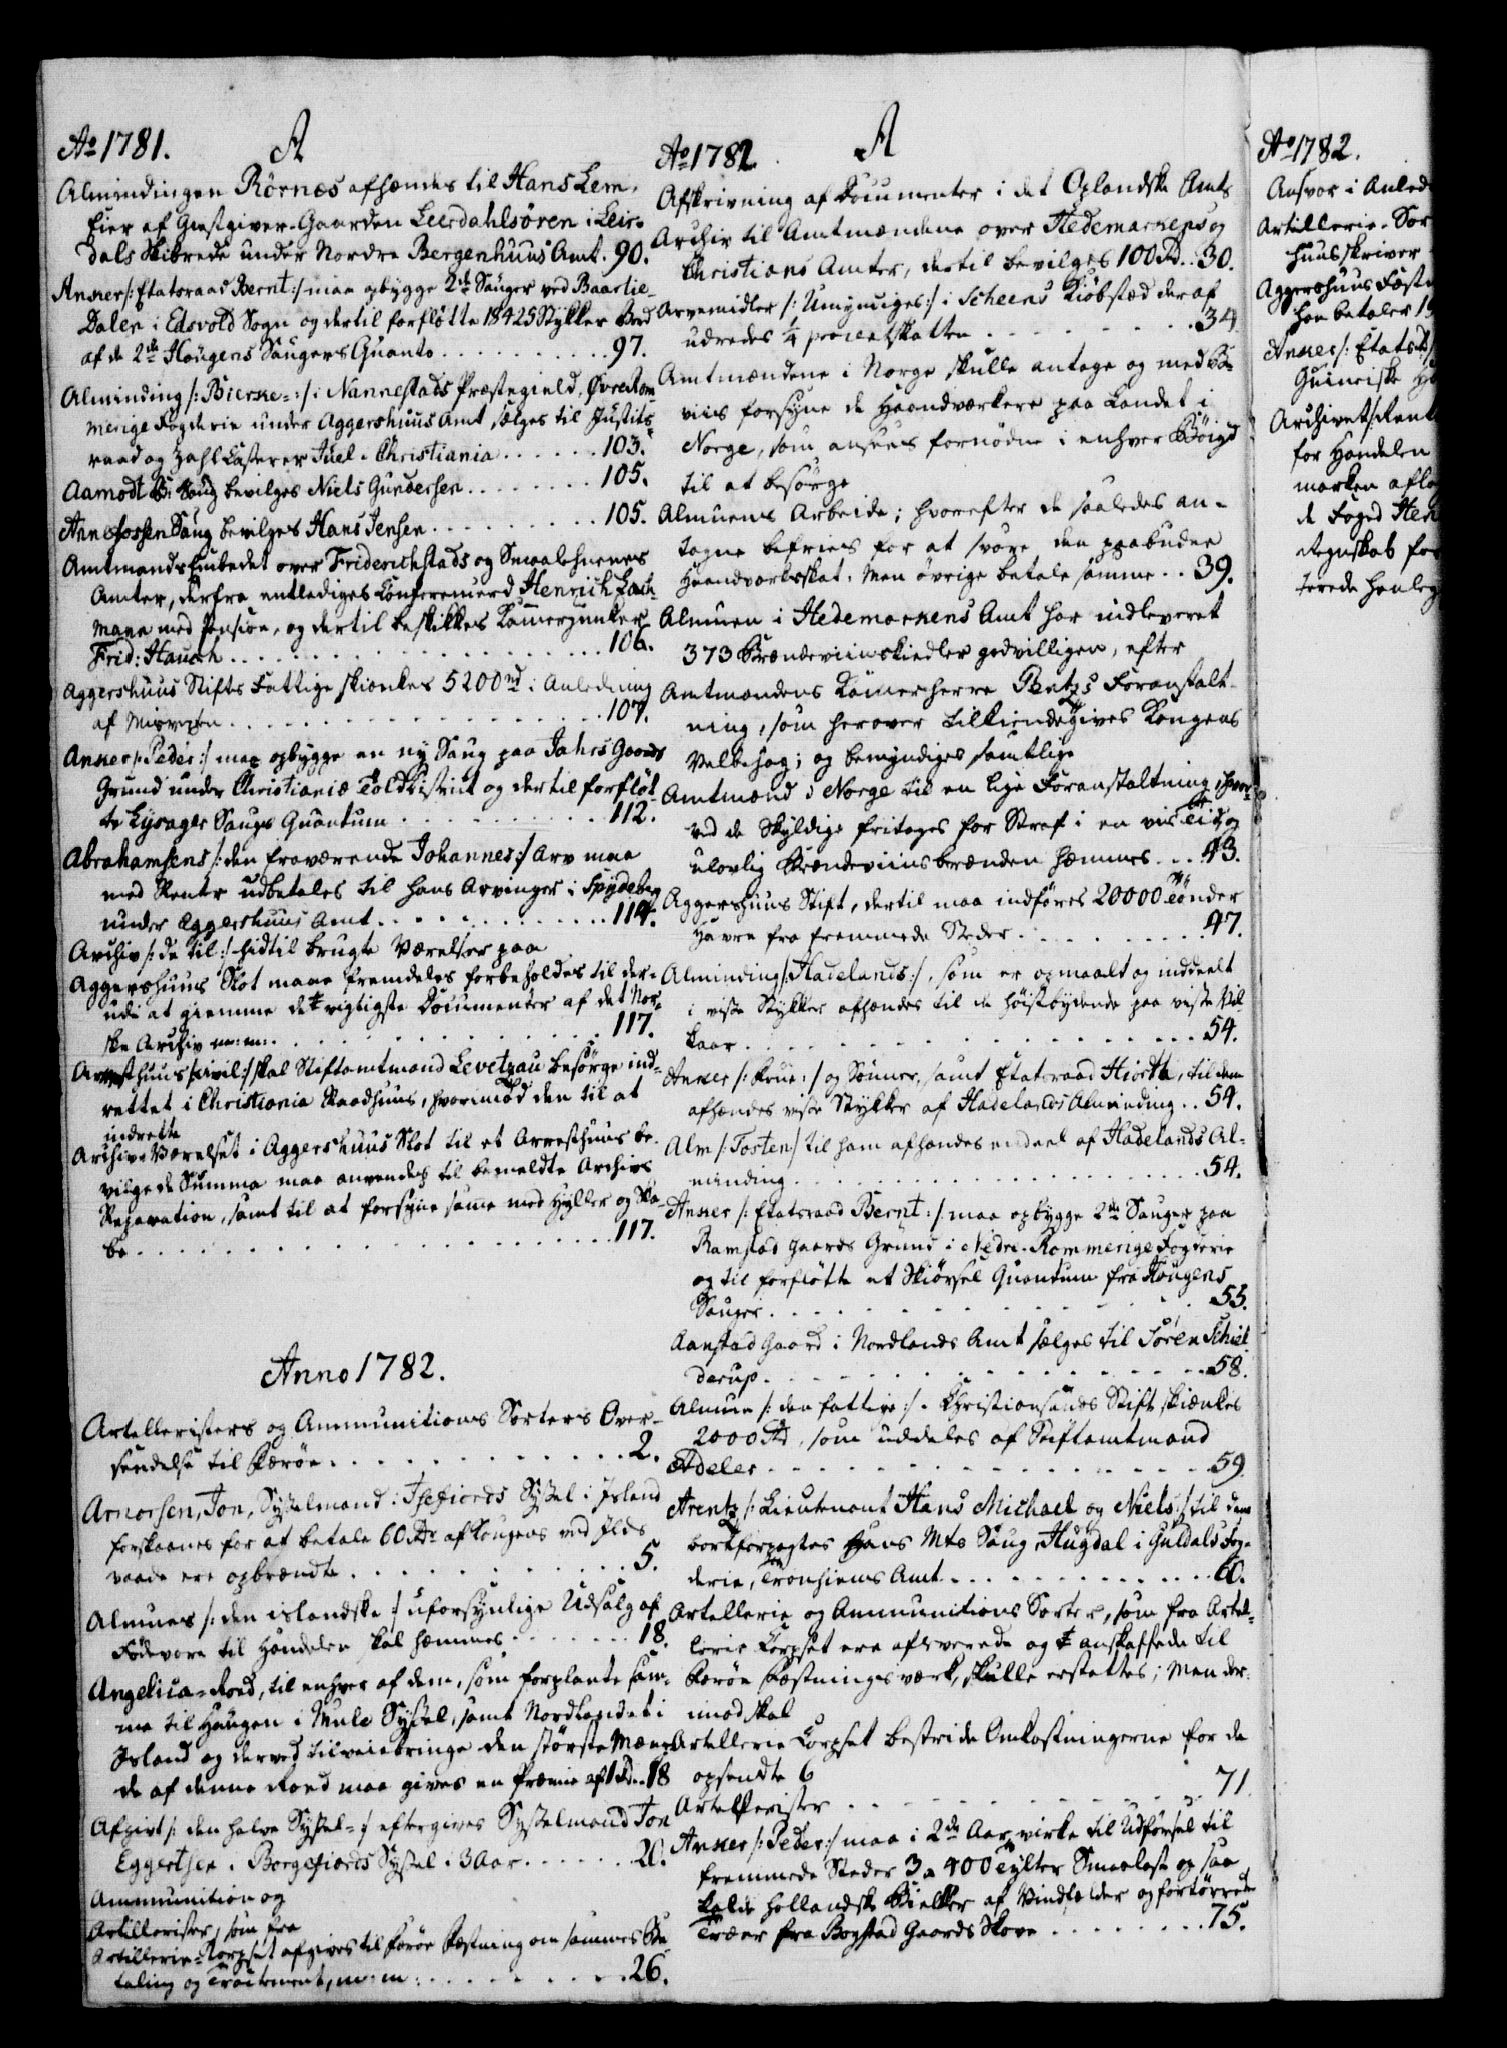 Ao 1781. A
Almindingen Rörnæs afhændes til Hans Lem,
Eier af Gæstgiver-Gaarden Leerdahlsören i Leir-
dals Skibrede under Nordre Bergenhuus Amt. 90.
Anker /: Etatsraad Bernt :/ maa opbygge 2de Sauger ved Baarlie-
Dalen i Edsvold Sogn og dertil forflötte 18425 Stykker Bord
af de 2de Haugens Saugers Quanto . . . 97.
Alminding /: Bierke- :/ i Nannestads Præstegield, Øvre Rom
merige Fogderie under Aggershuus Amt, sælges til Justits-
raad og Zahl Casserer Juel i Christiania . . . 103.
Aamodt Saug bevilges Niels Gundersen . . . 105.
Saug bevilges Hans Jensen . . . 105.
Amtmands Embedet over Friderichstads og Smaalehnenes
Amter, derfra entlediges Conferenceraad Henrich
mann med Pension, og dertil beskikkes Kammerjunker
Frid: Hauch . . . 106.
Aggershuus Stifts Fattige skienkes 5200 rd i Anledning
af Misvexten . . . 107.
Anker /: Peder :/ maa opbygge en ny Saug paa Jahrs Gaards
Grund under Christianiæ Told District og dertil forflöt-
te Lysager Saugs Quantum . . . 112.
Abrahamsens /: den fraværende Johannes :/ Arv maa
med Renter udbetales til hans Arvinger i Spydeberg
under Aggershuus Amt . . . 114.
Archiv /: de til :/ hidtil brugte Værelser paa
Aggershuus Slot maae fremdeles forbeholdes til der-
udi at giemme de vigtigste Documenter af det Nor-
ske Archiv m: m: . . . 117.
Arresthuus /: civil :/ skal Stiftamtmand Levetzau besörge ind-
rettet i Christiania Raadhuus, hvorimod den til at
indrette
Archiv-Værelset i Aggershuus Slot til et Arresthuus be-
vilgede Summa maa anvendes til bemeldte Archivs
Reparation, samt til at forsyne samme med Hylder og Ska-
be . . . 117.
Anno 1782.
Artelleristers og Ammunitions Sorters Over-
sendelse til Færöe . . . 2.
Arnorsen, Jon, Sysselmand i Isefiords Syssel i Island
forskaanes for at betale 60 Rdr af Kongens ved Ilds
vaade ere opbrændte . . . 5.
Almues /: den islandske :/ uforsynlige Udsalg af
Födevare til Handelen skal hæmmes . . . 18.
Angelica-Roed, til enhver af dem, som forplante sam-
me til Haugen i Mule Syssel, samt Nordlandet i
Island og derved tilveiebringe den störste Mæng-
de af denne Roed maa gives en Præmie af 1 Rd . . 18
Afgivt /: den halve Syssel- :/ eftergives Sysselmand Jon
Eggertsen i Borgefiords Syssel i 3 Aar . . . 20.
Ammunition og
Artillerister, som fra
Artillerie-Corpset afgives til Færöe Fæstning om sammes Be-
taling og Tractement, m: m: . . . 26.
Ao 1782. A
Afskrivning af Documenter i det Oplandske Amts
Archiv til Amtmændene over Hedemarkens og
Christians Amter, dertil bevilges 100 Rd. . . 30.
Arvemidler /: Umyndiges :/ i Scheens Kiöbstæd deraf
udredes 1/4 procentskatten . . . 34
Amtmændene i Norge skulle antage og med Be-
viis forsyne de Haandværkere paa Landet i
Norge, som ansees fornödne i enhver Böigd
til at besörge
Almuens Arbeide; hvorefter de saaledes an-
tagne befries for at svare den paabudne
Haandværksskat. Men övrige betale samme . . 39.
Almuen i Hedemarkens Amt har indleveret
373 Brændeviinskiedler godvilligen, efter
Amtmandens Kammerherre Pentz's Foranstalt-
ning, som herover tilkiendegives Kongens
Velbehag; og bemyndiges samtlige
Amtmænd i Norge til en lige Foranstaltning, hvor-
ved de Skyldige fritages for Straf i en vis Tid, og
ulovlig Brændeviinsbrænden hæmmes . . . 43.
Aggershuus Stift, dertil maa indföres 20000 Tönder
Havre fra fremmede Steder . . . 47.
Alminding /: Hadelands :/, som er opmaalt og inddeelt
i visse Stykker afhændes til de höistbydende paa visse Vil-
kaar . . . 54.
Anker /: Frue :/ og Sönner, samt Etatsraad Hiorth, til dem
afhændes visse Stykker af Hadelands Alminding . . 54.
Alm /: Tosten :/ til ham afhændes endeel af Hadelands Al-
minding . . . 54.
Anker /: Etatsraad Bernt :/ maa opbygge 2de Sauger paa
Ramstad Gaards Grund i Nedre-Rommerige Fogderie
og til forflötte et Skiörsel Quantum fra Haugens
Sauger . . . 55.
Aanstad Gaard i Nordlands Amt sælges til Sören Schiel
derup . . . 58.
Almue /: den fattige :/ i Christiansands Stift skiænkes
2000 Rd, som uddeles af Stiftamtmand
Adeler . . . 59
Arentz /: Lieutenant Hans Michael og Niels :/ til dem
bortforpagtes Hans Mts Saug Hugdal i Guldals Fog-
derie, Tronhiems Amt . . . 60.
Artellerie og Ammunitions Sorter, som fra Artel-
lerie Corpset ere afleverede og anskaffede til
Færöe Fæstnings værk, skulle erstattes; Men der-
imod skal
Artellerie Corpset bestride Omkostningerne for de
opsendte 6
Artellerister . . . 71.
Anker /: Peder :/ maa i 2de Aar virke til Udförsel til
fremmede Steder 3 a 400 Tylter Smaalast og saa
kaldte hollandske Bielker af Vindfælder og fortörrede
Træer fra Bogstad Gaards Skove . . . 75.
Ao 1782.
Ansvar i Anled
Artillerie-Sor
huusskriver
Aggershuus Fæstn
han betaler
Anker /: Etats
Guineiske
Archivet /: Rent
for Handelen
marken aflag
de Foged Hen
Regnskab for
terede henleg